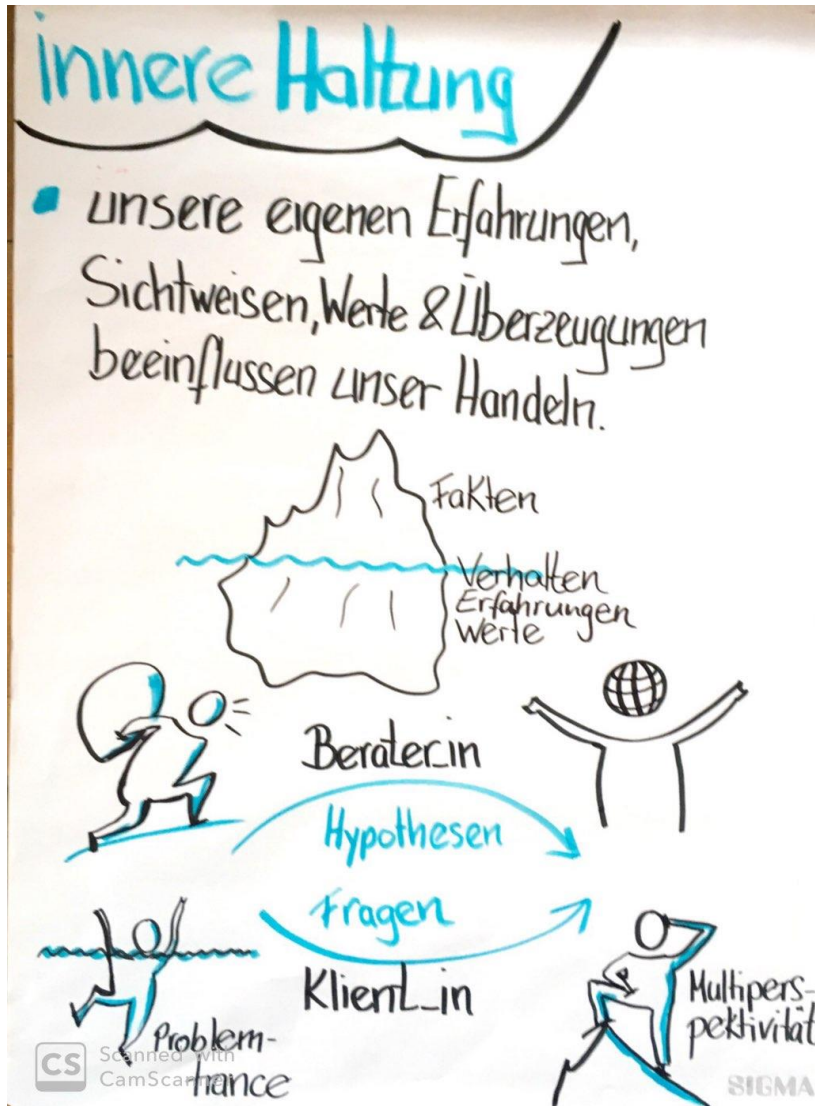 innere Haltung
unsere eigenen Erfahrungen,
Sichtweisen, Werte & Überzeugungen
beeinflussen unser Handeln.
Fakten
Verhalten
Erfahrungen
Werte
Berater_in
Hypothesen
Fragen
Klient_in
Problem-
trance
Multipers-
pektivität
CS Scanned with
CamScanner
SIGMA